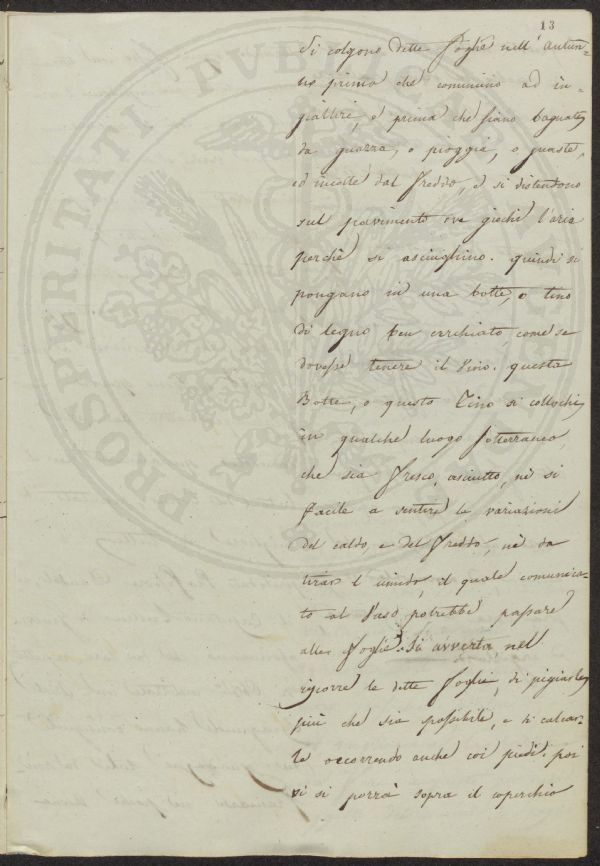 13
Si colgono dette Foglie nell' autun-
no prima che comincino ad in-
giallire, e prima che siano bagnate
da guazza, o pioggia, o guaste,
ed incotte dal freddo, e si distendono
sul pavimento ove giochi l'aria
perchè si asciughino. quindi si
pongano in una botte, o tino
di legno ben cerchiato, come se
dovesse tenere il Vino. questa
Botte, o questo Tino si collochi
in qualche luogo sotterraneo,
che sia fresco, asciutto, nè sì
facile a sentire le variazioni
del caldo, e del freddo, nè da
tirar l'umido, il quale comunica-
to al Vaso potrebbe passare
alle foglie. Si avverta nel
riporre le dette foglie, di pigiarle
più che sia possibile, e di calcar-
le occorrendo anche coi piedi. poi
vi si porrà sopra il coperchio
PROSPERITATI PVBLICAE